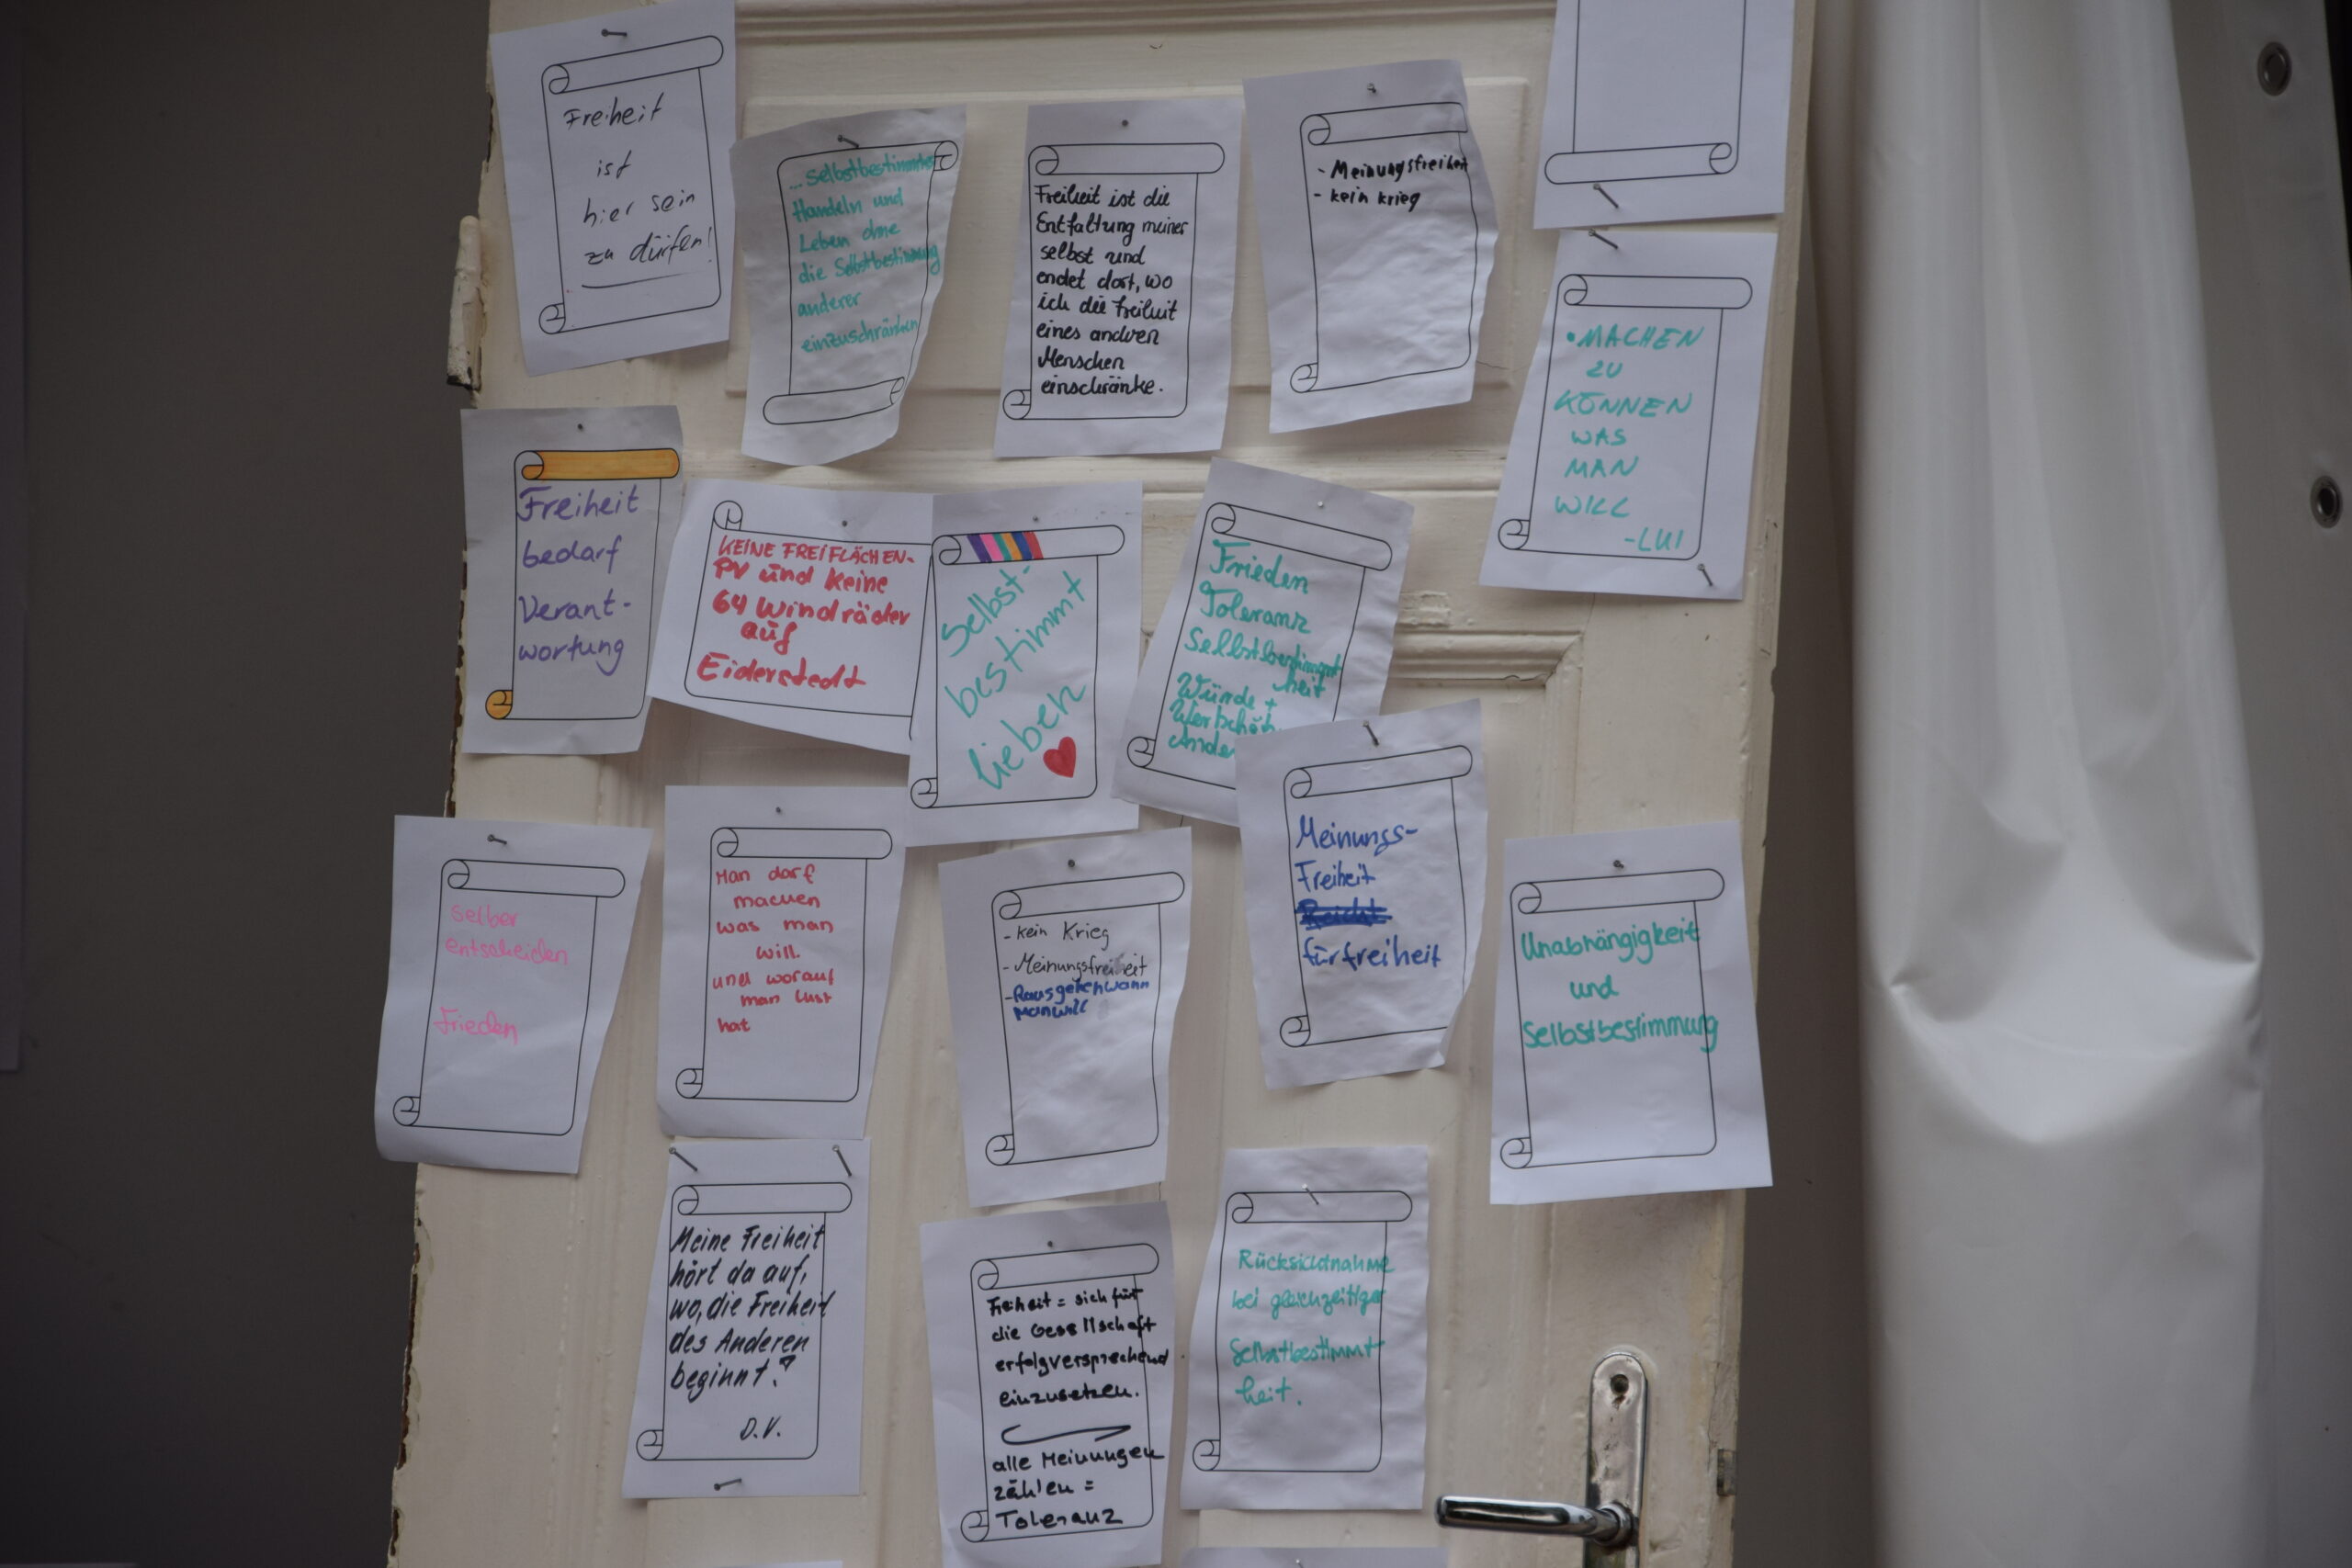 Freiheit
ist
hier sein
zu dürfen!
... Selbstbestimmtes
Handeln und
Leben ohne
die Selbstbestimmung
anderer
einzuschränken
Freiheit ist die
Entfaltung meiner
selbst und
endet dort, wo
ich die Freiheit
eines andren
Menschen
einschränke.
- Meinungsfreiheit
- kein krieg
• MACHEN
ZU
KÖNNEN
WAS
MAN
WILL
-LUI
Freiheit
bedarf
Verant-
wortung
KEINE FREIFLÄCHEN-
PV und keine
64 Windräder
auf
Eiderstedt
Selbst-
bestimmt
lieben
Frieden
Toleranz
Selbstbestimmt
heit
Würde +
Meinungs-
Freiheit
fürfreiheit
selber
entscheiden
Frieden
Man darf
machen
was man
will.
und worauf
man lust
hat
- kein Krieg
- Meinungsfreiheit
- Rausgehen wann
man will
Unabhängigkeit
und
Selbstbestimmung
Meine Freiheit
hört da auf,
wo, die Freiheit
des Anderen
beginnt?
D.V.
Freiheit = sich für
die Gesellschaft
erfolgversprechend
einzusetzen.
alle Meinungen
zählen =
Toleranz
Rücksichtnahme
bei gleichzeitiger
Selbstbestimmt
heit.